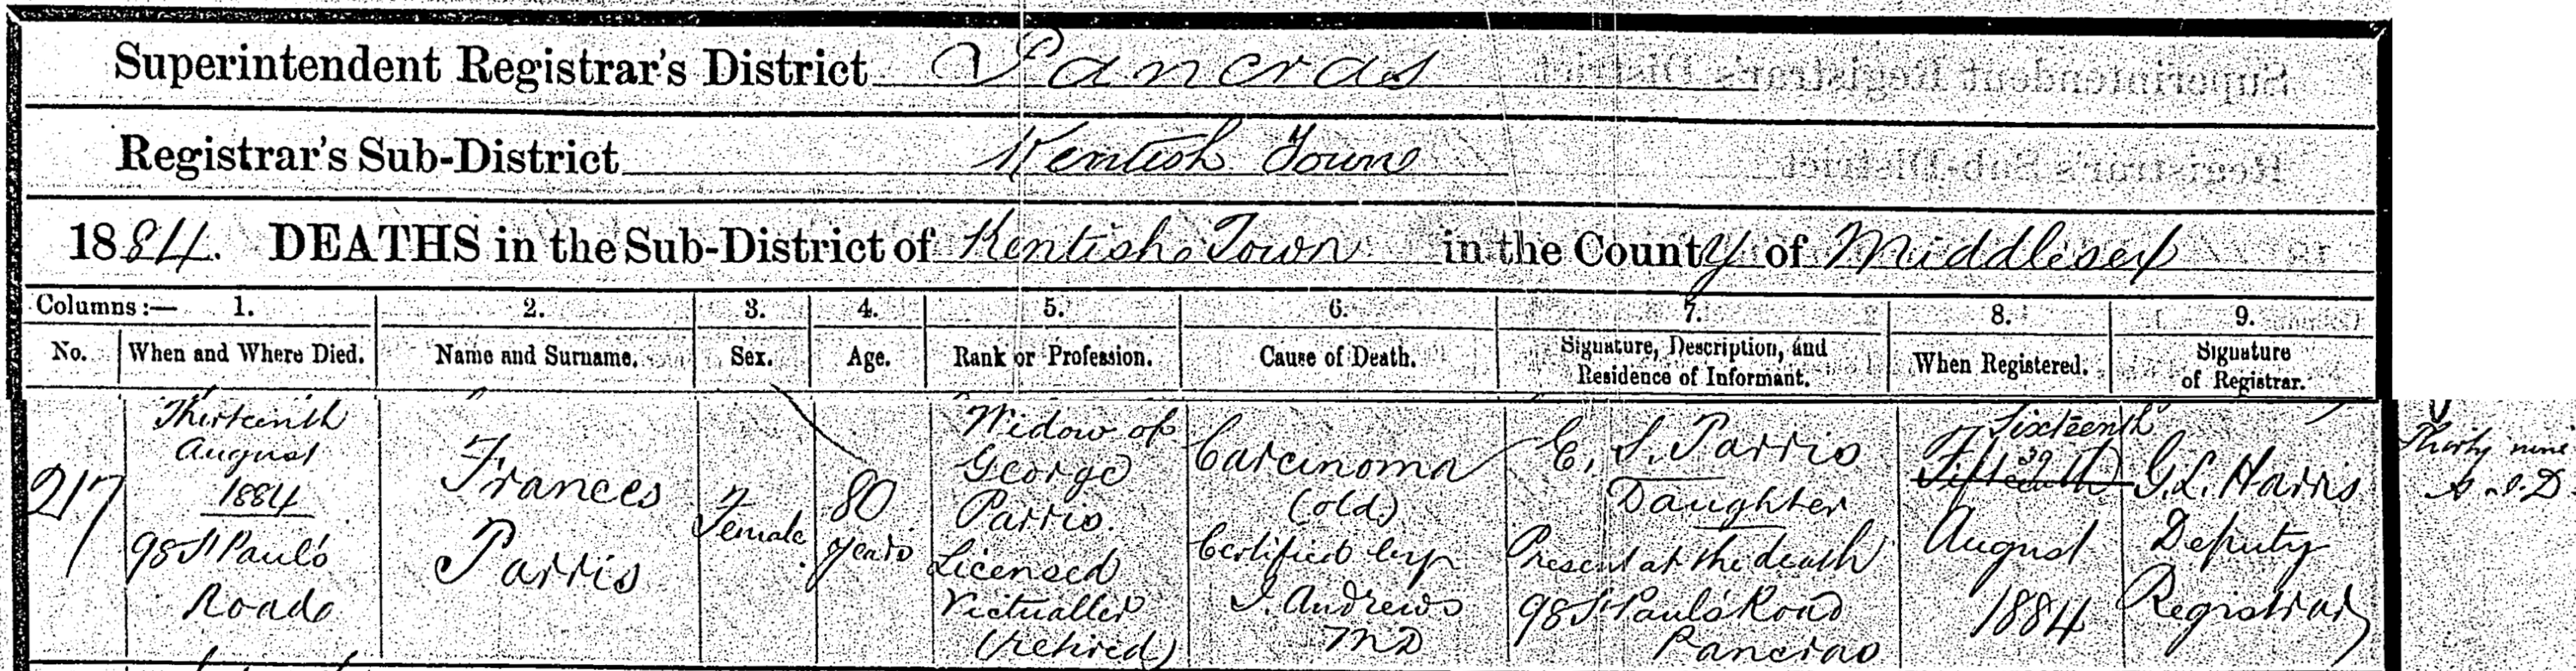 Superintendent Registrar's District Pancras
Registrar's Sub-District Kentish Town
1884. DEATHS in the Sub-District of Kentish Town in the County of Middlesex
Columns:— 1. 2. 3. 4. 5. 6. 7. 8. 9.
No. When and Where Died. Name and Surname. Sex. Age. Rank or Profession. Cause of Death. Signature, Description, and Residence of Informant. When Registered. Signature of Registrar.
217
Thirteenth
August
1884
98 St Paul's
Road
Frances
Parris
Female
80
years
Widow of
George
Parris.
Licensed
Victualler
(retired)
Carcinoma
(old)
Certified by
J. Andrews
MD
E. S. Parris
Daughter
Present at the death
98 St Paul's Road
Pancras
Sixteenth
39
Fifteenth
August
1884
G. L. Harris
Deputy
Registrar
Thirty nine